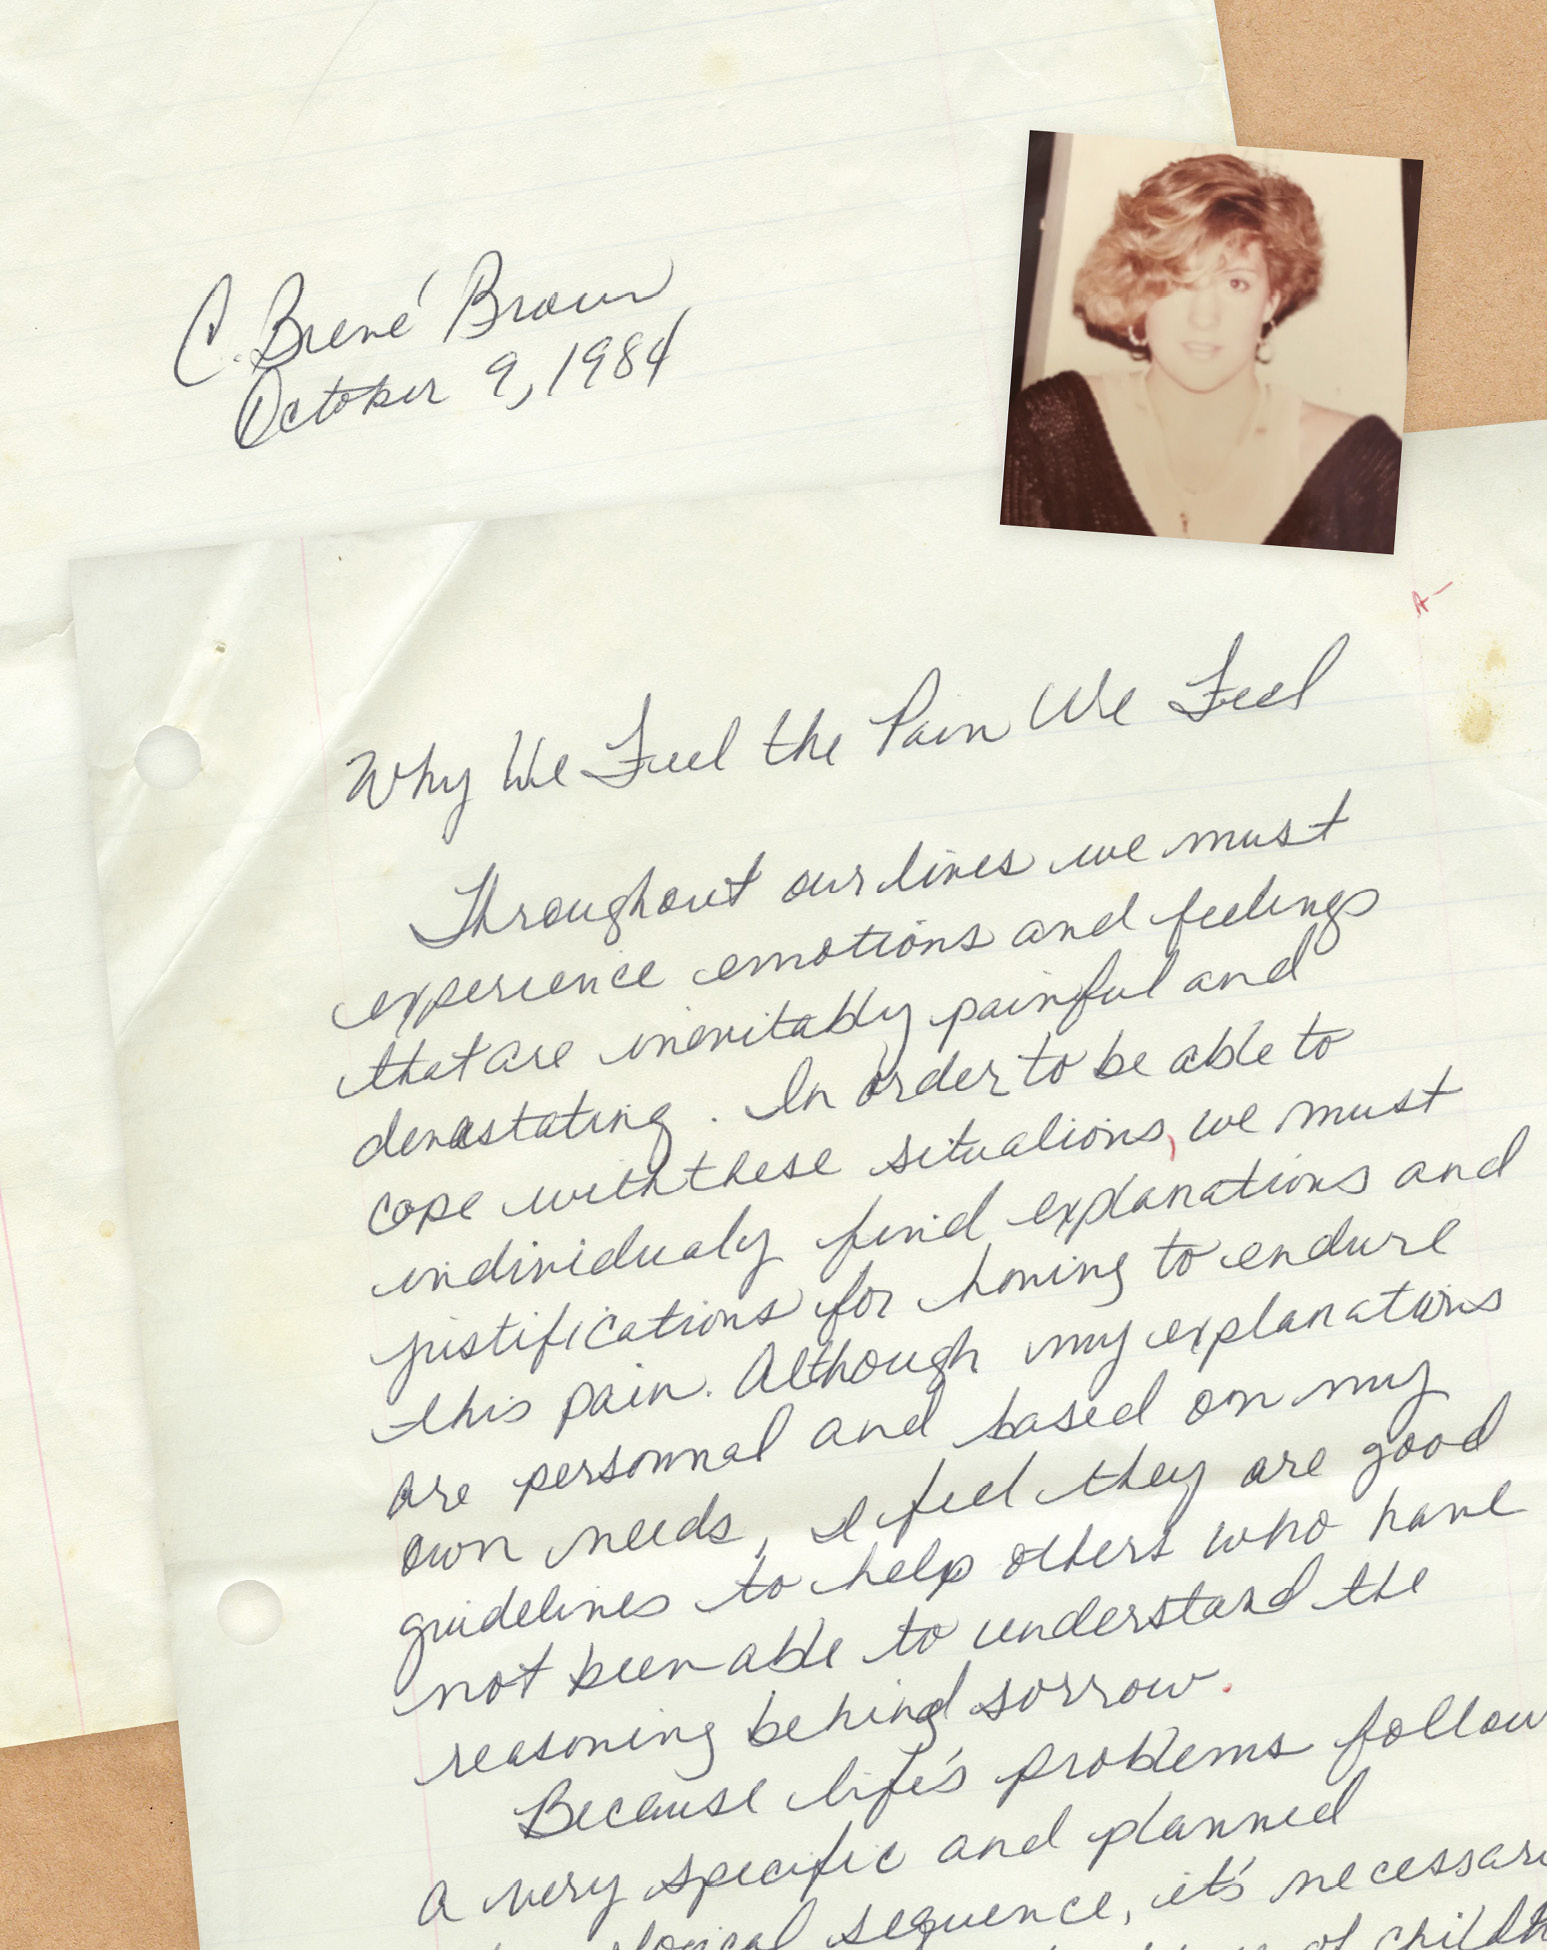 C. Brené Brown
October 9, 1984
A-
Why We Feel the Pain We Feel
Throughout our lives we must
experience emotions and feelings
that are inevitably painful and
devastating. In order to be able to
cope with these situations, we must
individualy find explanations and
justifications for having to endure
this pain. Although my explanations
are personnal and based on my
own needs, I feel they are good
guidelines to help others who have
not been able to understand the
reasoning behind sorrow.
Because life's problems follow
a very specific and planned
sequence, it's necessar
of childh